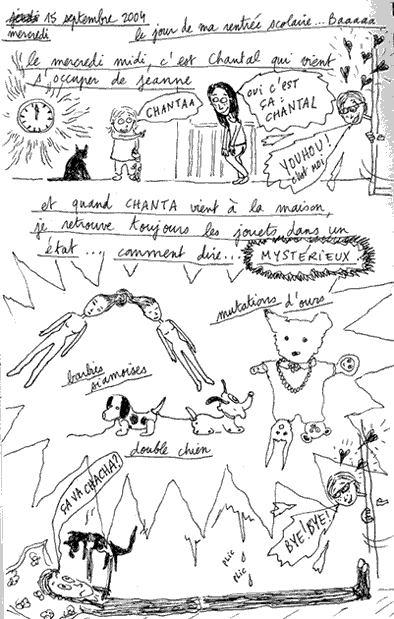 jeudi 15 septembre 2004
mercredi
le jour de ma rentrée scolaire... Baaaaa
le mercredi midi, c'est Chantal qui vient
s'occuper de jeanne
CHANTAA
OUI C'EST
ÇA :
CHANTAL
YOUHOU !
c'est moi
et quand CHANTA vient à la maison,
je retrouve toujours les jouets dans un
état .... comment dire... MYSTERIEUX
mutations d'ours
barbies
siamoises
double chien
ÇA VA CHACHA?
BYE! BYE!
PLIC
PLIC